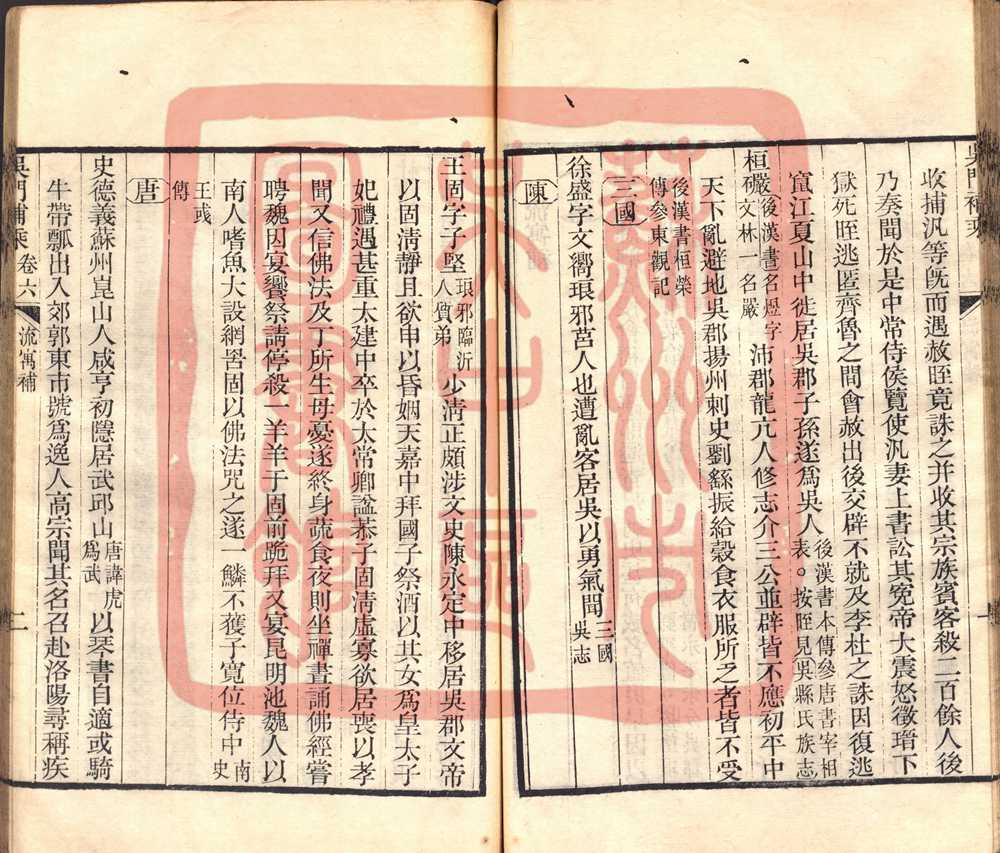 收捕汎等旣而遇赦晊竟誅之并收其宗族賓客殺二百餘人後
乃奏聞於是中常侍侯覽使汎妻上書訟其冤帝大震怒徵瑨下
獄死晊逃匿齊魯之間會赦出後交辟不就及李杜之誅因復逃
竄江夏山中徙居吳郡子孫遂爲吳人後漢書本傳參唐書宰相表。按晊見吳縣氏族志
桓礹後漢書名煜字文林一名嚴沛郡龍亢人修志介三公並辟皆不應初平中
天下亂避地吳郡揚州刺史劉繇振給穀食衣服所乏者皆不受
後漢書桓榮傳參東觀記
三國
徐盛字文嚮琅邪莒人也遭亂客居吳以勇氣聞三國吳志
陳
王固字子堅琅邪臨沂人質弟少淸正頗涉文史陳永定中移居吳郡文帝
以固淸靜且欲申以昏姻天嘉中拜國子祭酒以其女爲皇太子
妃禮遇甚重太建中卒於太常卿諡恭子固淸虛寡欲居喪以孝
聞又信佛法及丁所生母憂遂終身蔬食夜則坐禪晝誦佛經嘗
聘魏因宴饗祭請停殺一羊羊于固前跪拜又宴昆明池魏人以
南人嗜魚大設網罟固以佛法咒之遂一鱗不獲子寬位侍中南史
王彧傳
唐
史德義蘇州崑山人咸亨初隱居武邱山唐諱虎爲武以琴書自適或騎
牛帶瓢出入郊郭東市號爲逸人高宗聞其名召赴洛陽尋稱疾
吳門補乘 卷六 流寓補 二
吳門補乘
蘇州市
圖書館